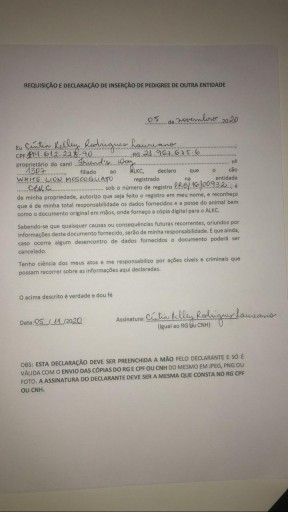 REQUISIÇÃO E DECLARAÇÃO DE INSERÇÃO DE PEDIGREE DE OUTRA ENTIDADE
05 de novembro de 2020
Eu Cintia Kelly Rodrigues Laureano
CPF 612.228-70 RG 21.961.675.6
proprietário do canil way nº
1307 , filiado ao ALKC, declaro que o cão
WHITE LION registrado na entidade
sob o número de registro , é
de minha propriedade, autorizo que seja feito o registro em meu nome, e reconheço
que é de minha total responsabilidade os dados fornecidos e a posse do animal bem
como o documento original em mãos, onde forneço a cópia digital para o ALKC.
Sabendo-se que quaisquer causas ou consequências futuras recorrentes, oriundos por
informações deste documento fornecido, serão de minha responsabilidade. E que ainda,
caso ocorra algum desencontro de dados fornecidos o documento poderá ser
cancelado.
Tenho ciência dos meus atos e me responsabilizo por ações cíveis e criminais que
possam recorrer sobre as informações aqui declaradas.
O acima descrito é verdade e dou fé
Data: 05/11/2020 Assinatura: Cintia Kelly Rodrigues Laureano
(Igual ao RG ou CNH)
OBS: ESTA DECLARAÇÃO DEVE SER PREENCHIDA A MÃO PELO DECLARANTE E SÓ É
VÁLIDA COM O ENVIO DAS CÓPIAS DO RG E CPF OU CNH DO MESMO EM JPEG, PNG OU
FOTO. A ASSINATURA DO DECLARANTE DEVE SER A MESMA QUE CONSTA NO RG CPF
OU CNH.